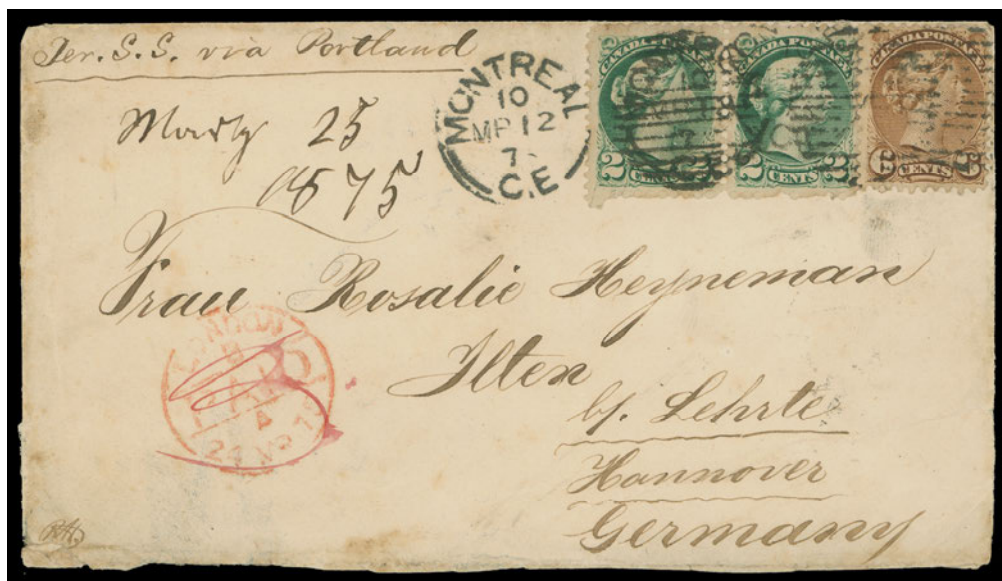 Per. S.S. via Portland
MONTREAL
10
MR 12
7
C.E
CANADA POSTAGE
2 CENTS 2
CANADA POSTAGE
2 CENTS 2
CANADA POSTAGE
6 CENTS 6
25
1875
Frau Rosalie Heyneman
Ilten
b/. Lehrte
Hannover
Germany
LONDON
PAID